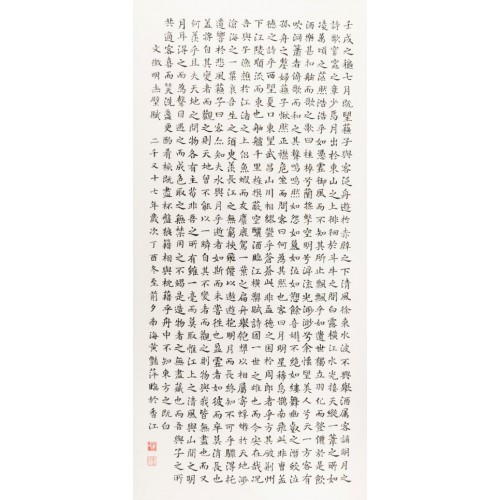 壬戌之秋七月既望蘇子與客泛舟遊於赤壁之下清風徐來水波不興舉酒属客誦明月之
詩歌窈窕之章少焉月出於東山之上徘徊於斗牛之間白露橫江水光接天縱一葦之所如
凌萬頃之茫然浩浩乎如馮虛御風而不知其所止飄飄乎如遺世獨立羽化而登僊於是飲
酒樂甚扣舷而歌之歌曰桂棹兮蘭槳擊空明兮泝流光渺渺兮余懷望美人兮天一方客有
吹洞簫者倚歌而和之其聲嗚嗚然如怨如慕如泣如愬餘音嫋嫋不絕如縷舞幽壑之潛蛟泣
孤舟之嫠婦蘇子愀然正襟危坐而問客曰何為其然也客曰月明星稀烏鵲南飛此非曹孟
德之詩乎西望夏口東望武昌山川相繆鬱乎蒼蒼此非孟德之困於周郎者乎方其破荊州
下江陵順流而東也舳艫千里旌旗蔽空釃酒臨江橫槊賦詩固一世之雄也而今安在哉況
吾與子漁樵於江渚之上侶魚蝦而友麋鹿駕一葉之扁舟舉匏樽以相屬寄蜉蝣於天地渺
滄海之一粟哀吾生之須臾羨長江之無窮挾飛僊以遨遊抱明月而長終知不可乎驟得托
遺響於悲風蘇子曰客亦知夫水與月乎逝者如斯而未嘗往也盈虛者如彼而卒莫消長也
蓋將自其變者而觀之則天地曾不能以一瞬自其不變者而觀之則物與我皆無盡也而又
何羨乎且夫天地之間物各有主苟非吾之所有雖一毫而莫取惟江上之清風與山間之明
月耳得之而為聲目遇之而成色取之無禁用之不竭是造物者之無盡藏也而吾與子之所
共適客喜而笑洗盞更酌肴核既盡杯盤狼籍相與枕藉乎舟中不知東方之既白
文徵明赤壁賦 二千又十七年歲次丁酉冬至前夕南海黃艷萍臨於香江